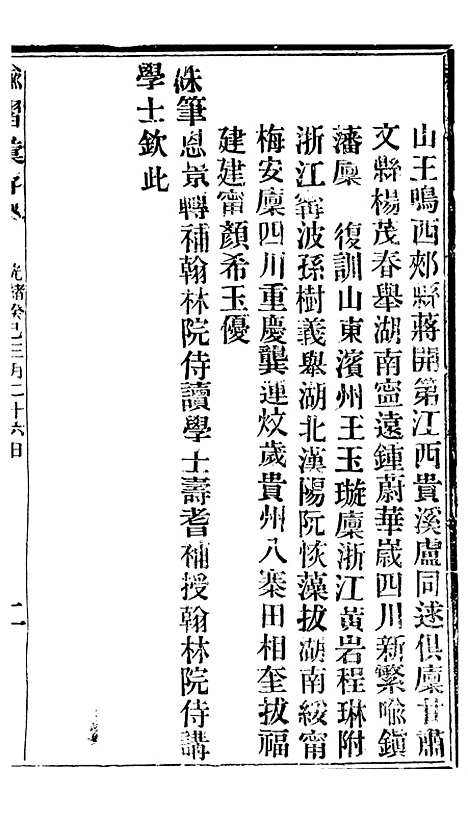 山王鳴西郟縣蔣開第江西貴溪盧同逑俱廩甘肅
文縣楊茂春舉湖南寧遠鍾蔚華歲四川新繁喻鎮
藩廩　復訓山東濱州王玉璇廩浙江黃岩程琳附
浙江甯波孫樹義舉湖北漢陽阮恢藻拔湖南綏甯
梅安廩四川重慶龔連炆歲貴州八寨田相奎拔福
建建甯顏希玉優
硃筆恩景轉補翰林院侍讀學士壽耆補授翰林院侍講
學士欽此
諭摺彙存
光緒癸巳三月二十六日
二